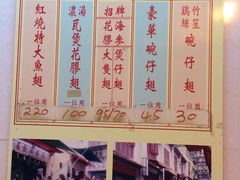 紅燒特大魚翅
一位用
220
濃湯
瓦煲花膠翅
一位用
100
牌海參煲仔翅
招花膠大隻翅
一位用
95/70
豪華碗仔翅
一位用
45
竹笙
鷄絲
碗仔翅
一位用
30